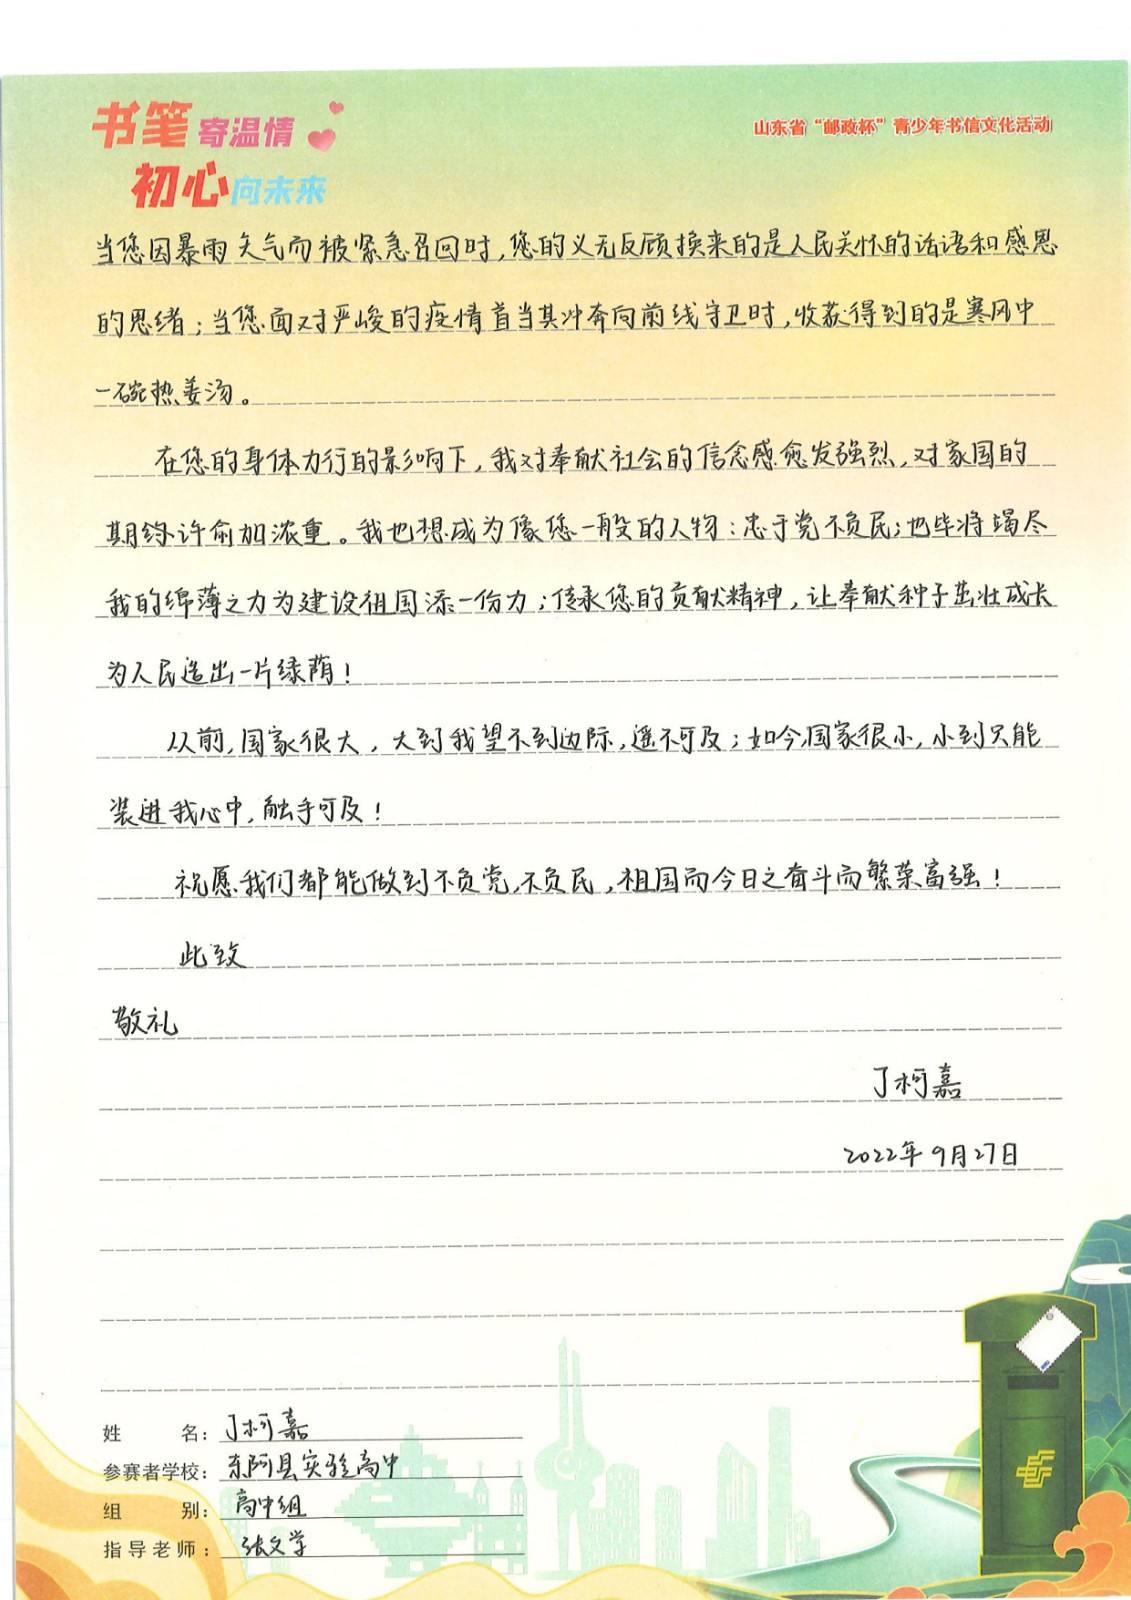 书笔寄温情
初心向未来
山东省“邮政杯”青少年书信文化活动
当您因暴雨天气而被紧急召回时,您的义无反顾换来的是人民关怀的话语和感恩
的思绪;当您面对严峻的疫情首当其冲奔向前线守卫时,收获得到的是寒风中
一碗热姜汤。
在您的身体力行的影响下,我对奉献社会的信念感愈发强烈,对家国的
期许愈加浓重。我也想成为像您一般的人物:忠于党不负民;也毕将竭尽
我的绵薄之力为建设祖国添一份力;传承您的贡献精神,让奉献种子茁壮成长
为人民造出一片绿荫!
从前,国家很大,大到我望不到边际,遥不可及;如今,国家很小,小到只能
装进我心中,触手可及!
祝愿我们都能做到不负党,不负民,祖国而今日之奋斗而繁荣富强!
此致
敬礼
丁柯嘉
2022年9月27日
姓 名: 丁柯嘉
参赛者学校: 东阿县实验高中
组 别: 高中组
指导老师: 张文学